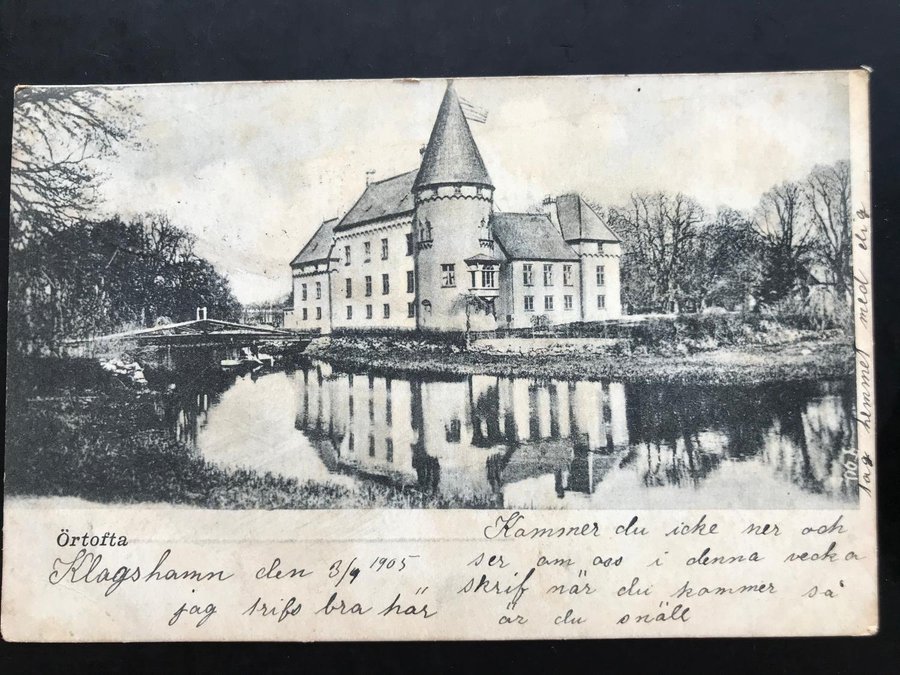 Örtofta
Klagshamn den 3/9 1905
jag trifs bra här
Kommer du icke ner och
ser om oss i denna vecka
skrif när du kommer så
är du snäll
hemmet med dig